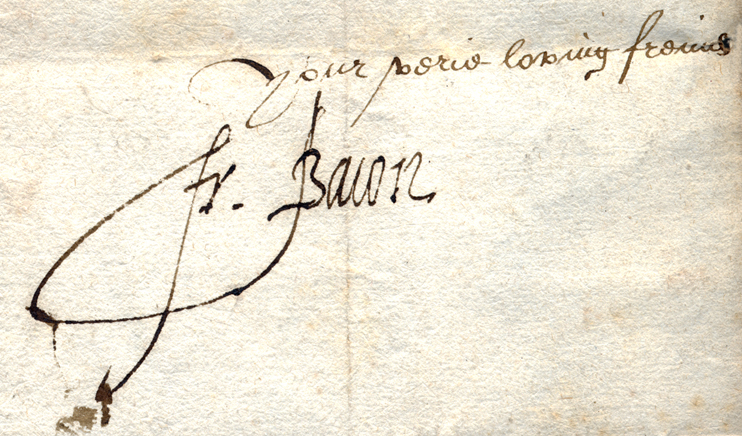 Your verie loving freind
Fr. Bacon